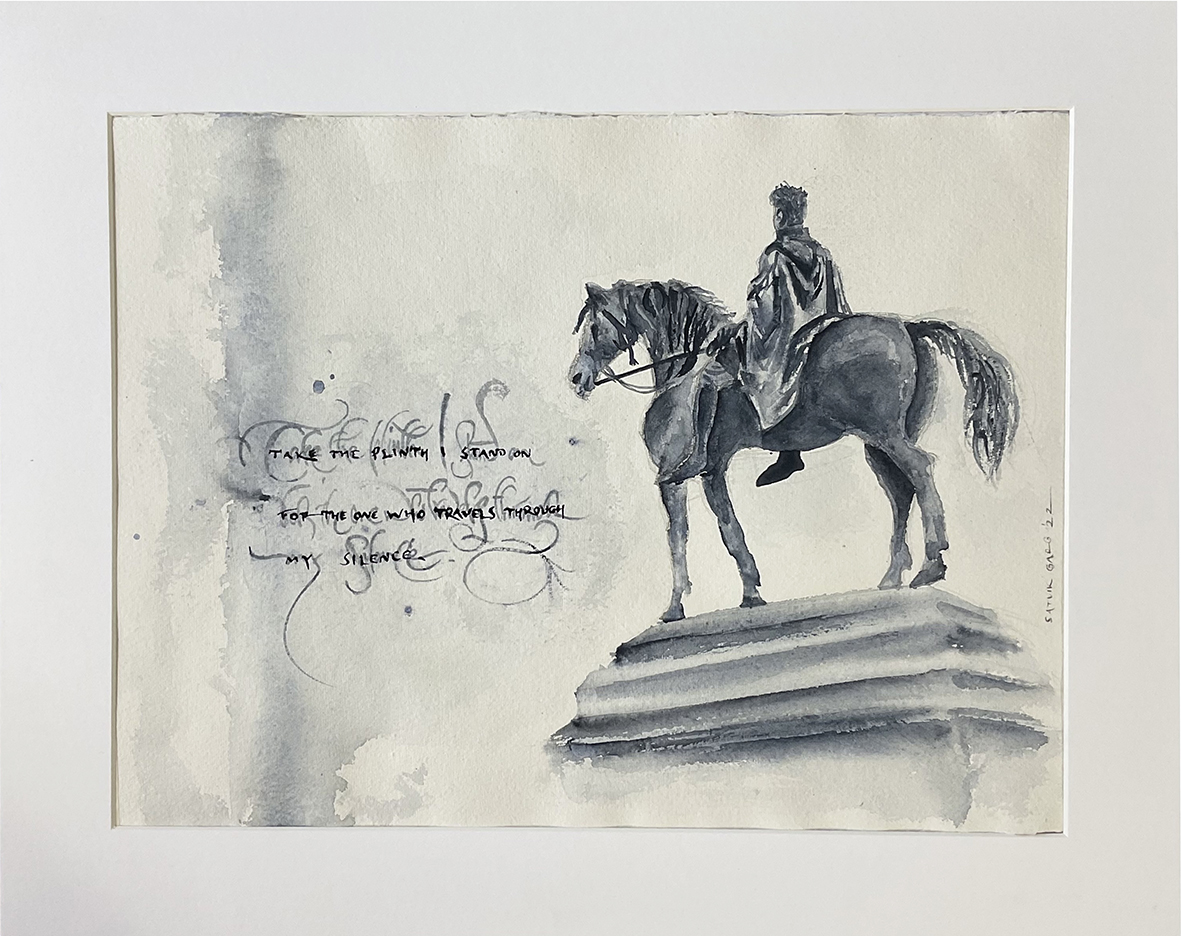 TAKE THE PLINTH I STAND ON
FOR THE ONE WHO TRAVELS THROUGH
MY SILENCE
SATVIK GARG '22